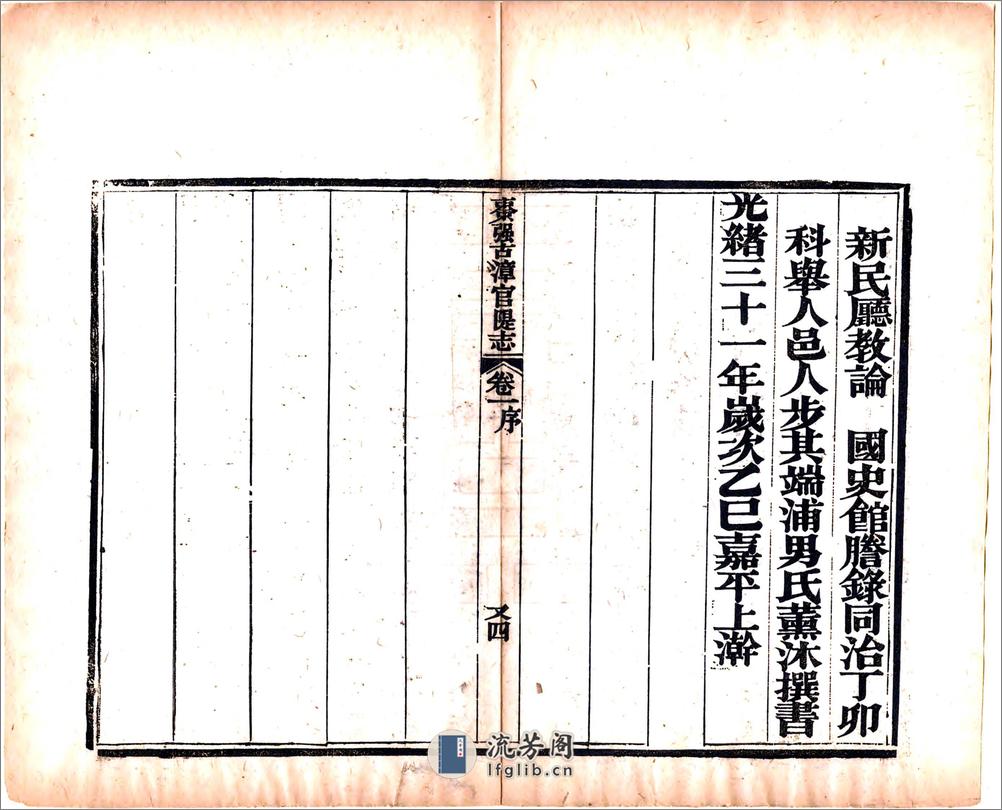 新民廳教論　國史館謄錄同治丁卯
科舉人邑人步其端浦男氏薰沐撰書
光緒三十一年歲次乙巳嘉平上澣
棗强古漳官隄志
卷一序
又四
流芳阁
lfglib.cn